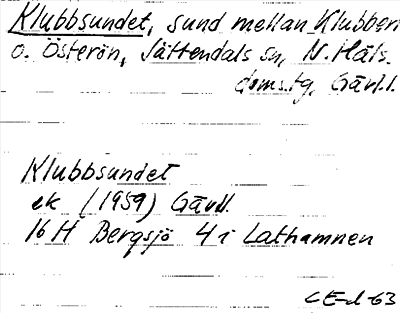 Klubbsundet, sund mellan Klubben
o. Österön, Jättendals sn, N. Häls.
doms.tg, Gävl.l.
Klubbsundet
ek (1959) Gävl.l.
16 H Bergsjö 4 i Lathamnen
CE-d-63